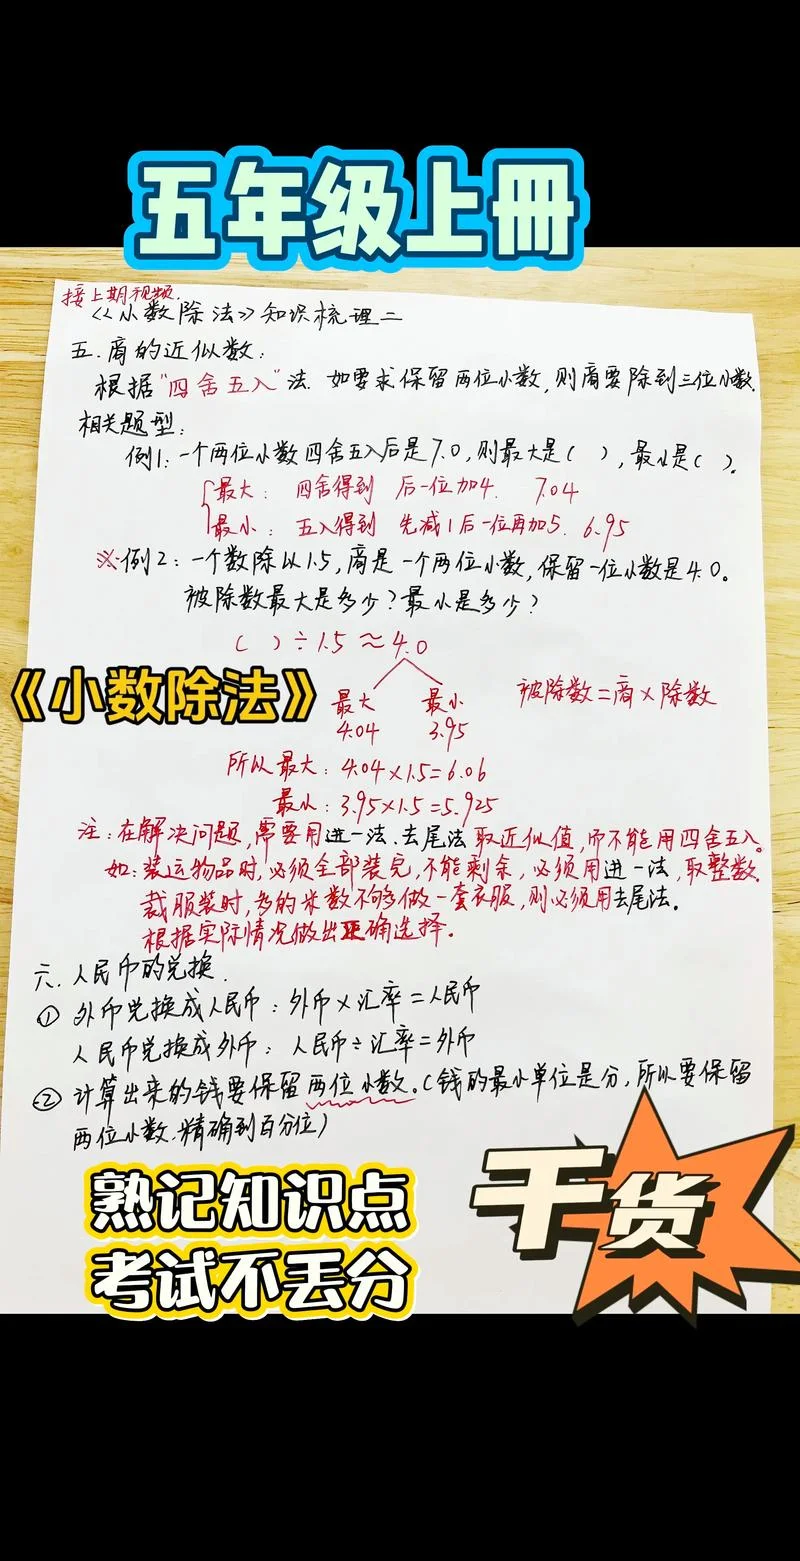 五年级上册
接上期视频.
《小数除法》知识梳理二
五.商的近似数:
根据"四舍五入"法.如要求保留两位小数,则商要除到三位小数.
相关题型:
例1:一个两位小数四舍五入后是7.0,则最大是( ),最小是( )。
最大: 四舍得到 后一位加4. 7.04
最小: 五入得到 先减1后一位再加5. 6.95
※例2:一个数除以1.5,商是一个两位小数,保留一位小数是4.0。
被除数最大是多少?最小是多少?
( )÷1.5≈4.0
《小数除法》
最大 最小 被除数=商×除数
4.04 3.95
所以最大:4.04×1.5=6.06
最小:3.95×1.5=5.925
注:在解决问题,需要用进一法.去尾法取近似值,而不能用四舍五入。
如:装运物品时,必须全部装完,不能剩余,必须用进一法,取整数.
裁服装时,多的米数不够做一套衣服,则必须用去尾法。
根据实际情况做出正确选择。
六.人民币的兑换.
① 外币兑换成人民币:外币×汇率=人民币
人民币兑换成外币:人民币÷汇率=外币
② 计算出来的钱要保留两位小数。(钱的最小单位是分,所以要保留
两位小数.精确到百分位)
熟记知识点
考试不丢分
干货